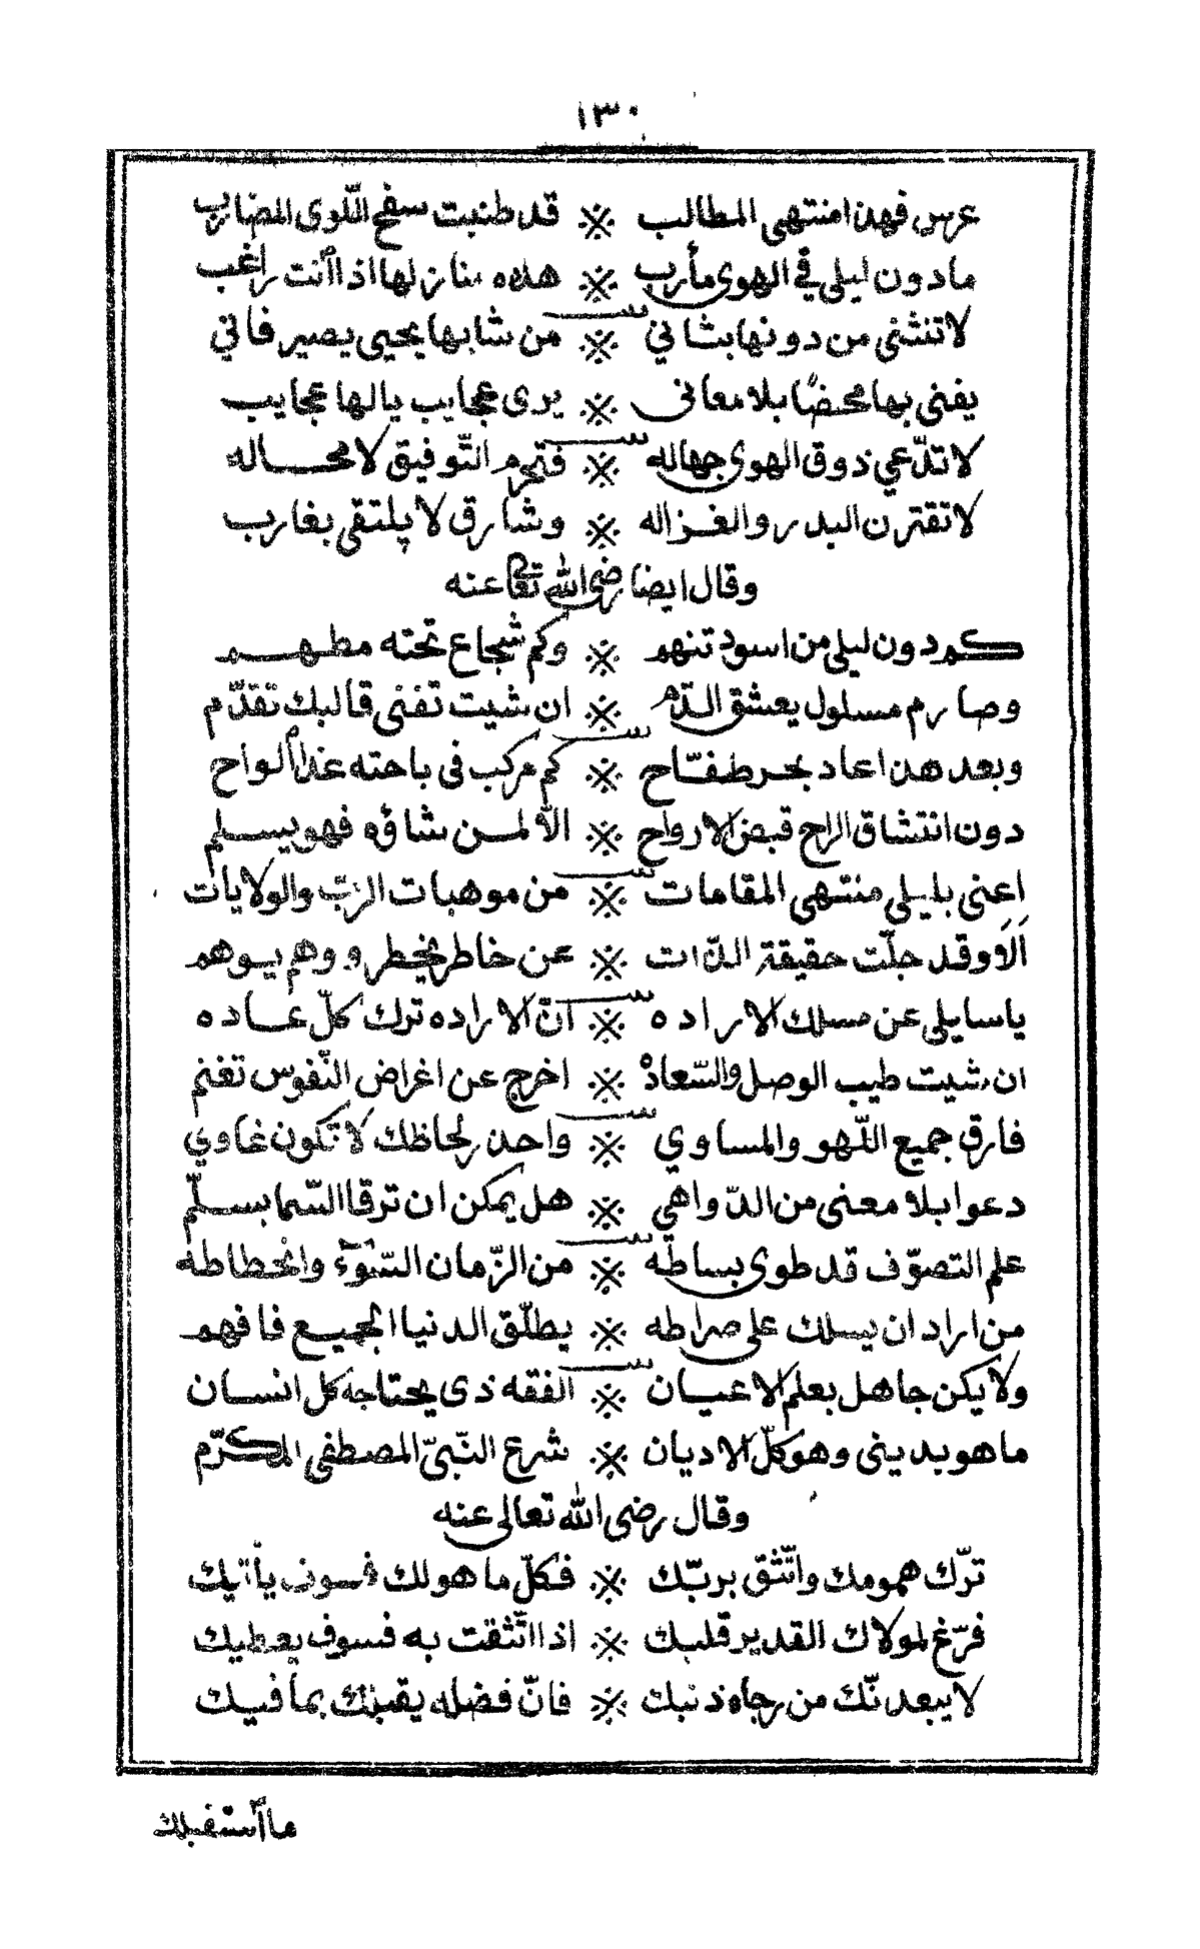 ١٣٠
عرس فهذا منتهى المطالب ※ قد طنبت سفح اللّوى المضارب
مادون ليلى في الهوى مأرب ※ هذه منازلها اذا أنت راغب
لا تنثني من دونها بثاني ※ من شابها يحيى يصير فاني
يفنى بها محضًا بلا معانى ※ يرى عجايب يالها عجايب
لا تدّعي ذوق الهوى جهاله ※ فتحرم التّوفيق لا محاله
لا تقترن البدر والغزاله ※ وشارق لا يلتقى بغارب
وقال ايضا رضى الله تعالى عنه
كم دون ليلى من اسود تنهم ※ وكم شجاع تحته مطهم
وصارم مسلول يعشق الدّم ※ ان شيت تفنى قالبك تقدّم
وبعد هذا عاد بحر طفّاح ※ كم مركب في باحته غدا ألواح
دون انتشاق الراح قبض الارواح ※ الّا لمن شاؤه فهو يسلم
اعنى بليلى منتهى المقامات ※ من موهبات الربّ والولايات
اَلَا وقد جلّت حقيقة الذّات ※ عن خاطر يخطر ووهم يوهم
يا سايلى عن مسلك الاراده ※ انّ الاراده ترك كلّ عاده
ان شيت طيب الوصل والسّعادهْ ※ اخرج عن اغراض النّفوس تغنم
فارق جميع اللّهو والمساوي ※ واحذر لحاظك لا تكون غاوي
دعوا بلا معنى من الدّواهي ※ هل يمكن ان ترقا السّما بسلّم
علم التصوّف قد طوى بساطه ※ من الزّمان السّوّء وانحطاطه
من اراد ان يسلك على صراطه ※ يطلّق الدنيا الجميع فافهم
ولا يكن جاهل بعلم الاعيان ※ الفقه ذى يحتاجه كل انسان
ما هو بدينى وهو كلّ الاديان ※ شرع النّبىّ المصطفى المكرّم
وقال رضى الله تعالى عنه
ترّك همومك واتّثق بربّك ※ فكلّ ما هو لك فسوف يأتيك
فرّغ لمولاك القدير قلبك ※ اذا اتّثقت به فسوف يعطيك
لا يبعدنّك من رجاه ذنبك ※ فانّ فضله يقبلك بما فيك
ما أستقبلك